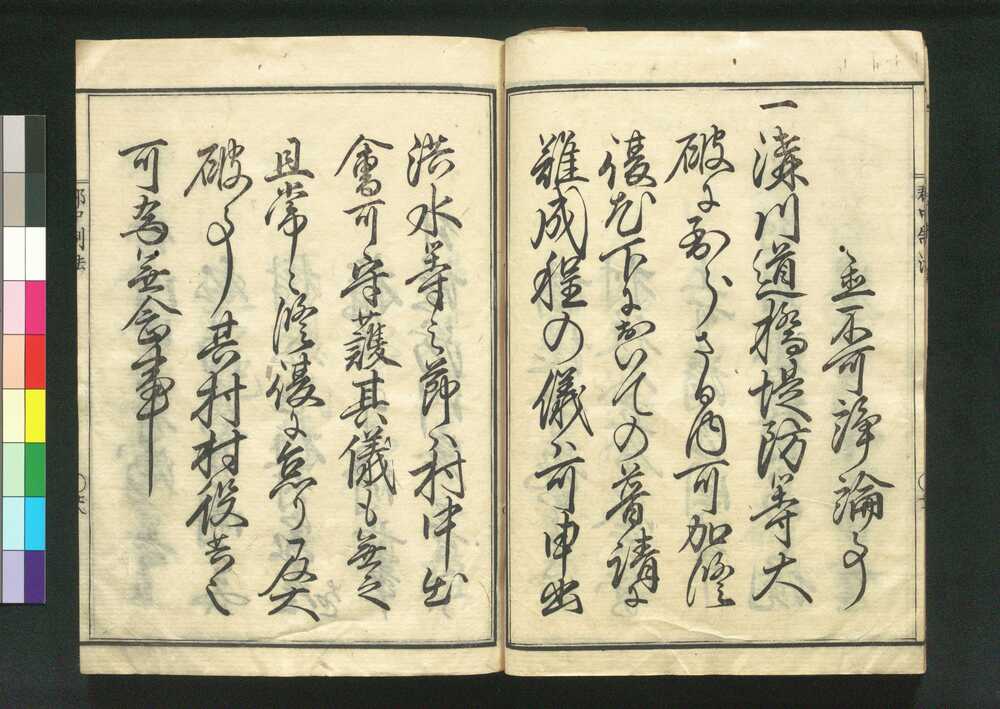 並不可諍論事
一溝川道橋堤防等大
破に至らさる内可加修
復尤下におゐての普請に
難成程の儀ハ可申出
洪水等之節ハ村中出
會可守護其儀も無之
且常々修復に怠り及大
破事ハ其村村役共之
可為無念事
郡中制法